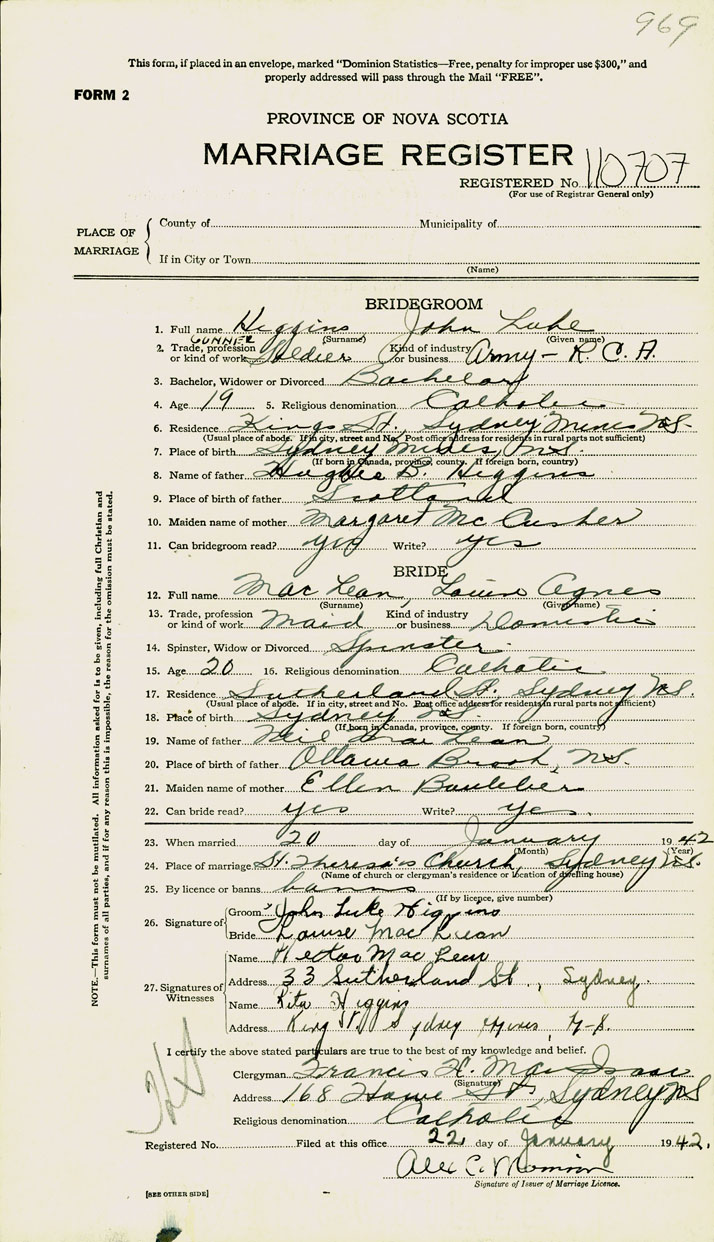 969
This form, if placed in an envelope, marked "Dominion Statistics—Free, penalty for improper use $300," and
properly addressed will pass through the Mail "FREE".
FORM 2
PROVINCE OF NOVA SCOTIA
MARRIAGE REGISTER
110707
REGISTERED No.
(For use of Registrar General only)
PLACE OF MARRIAGE
County of Municipality of
If in City or Town
(Name)
BRIDEGROOM
1. Full name Higgins John Luke
(Surname) (Given name)
GUNNER
2. Trade, profession or kind of work Soldier Kind of industry or business Army - R.C.A.
3. Bachelor, Widower or Divorced Bachelor
4. Age 19 5. Religious denomination Catholic
6. Residence Kings St., Sydney Mines N.S.
(Usual place of abode. If in city, street and No. Post office address for residents in rural parts not sufficient)
7. Place of birth Sydney Mines, N.S.
(If born in Canada, province, county. If foreign born, country)
8. Name of father Hughie D. Higgins
9. Place of birth of father Scotland
10. Maiden name of mother Margaret
11. Can bridegroom read? yes Write? yes
BRIDE
12. Full name Mac Lean, Louise Agnes
(Surname) (Given name)
13. Trade, profession or kind of work Maid Kind of industry or business Domestic
14. Spinster, Widow or Divorced Spinster
15. Age 20 16. Religious denomination Catholic
17. Residence Sutherland St., Sydney N.S.
(Usual place of abode. If in city, street and No. Post office address for residents in rural parts not sufficient)
18. Place of birth Sydney N.S.
(If born in Canada, province, county. If foreign born, country)
19. Name of father Neil Mac Lean
20. Place of birth of father Ottawa Brook, N.S.
21. Maiden name of mother Ellen
22. Can bride read? yes Write? yes.
23. When married 20 day of January 1942
(Month) (Year)
24. Place of marriage St. Theresa's Church, Sydney N.S.
(Name of church or clergyman's residence or location of dwelling house)
25. By licence or banns banns
(If by licence, give number)
26. Signature of
Groom John Luke Higgins
Bride Louise Mac Lean
27. Signatures of Witnesses
Name Hector Mac Lean
Address 33 Sutherland St., Sydney.
Name Rita Higgins
Address King St Sydney Mines, N-S.
I certify the above stated particulars are true to the best of my knowledge and belief.
Clergyman Francis H. Mac Isaac
(Signature)
Address 168 St., Sydney NS
Religious denomination Catholic
Registered No. Filed at this office 22 day of January 1942.
Alex C.
Signature of Issuer of Marriage Licence.
[SEE OTHER SIDE]
NOTE.—This form must not be mutilated. All information asked for is to be given, including full Christian and
surnames of all parties, and if for any reason this is impossible, the reason for the omission must be stated.